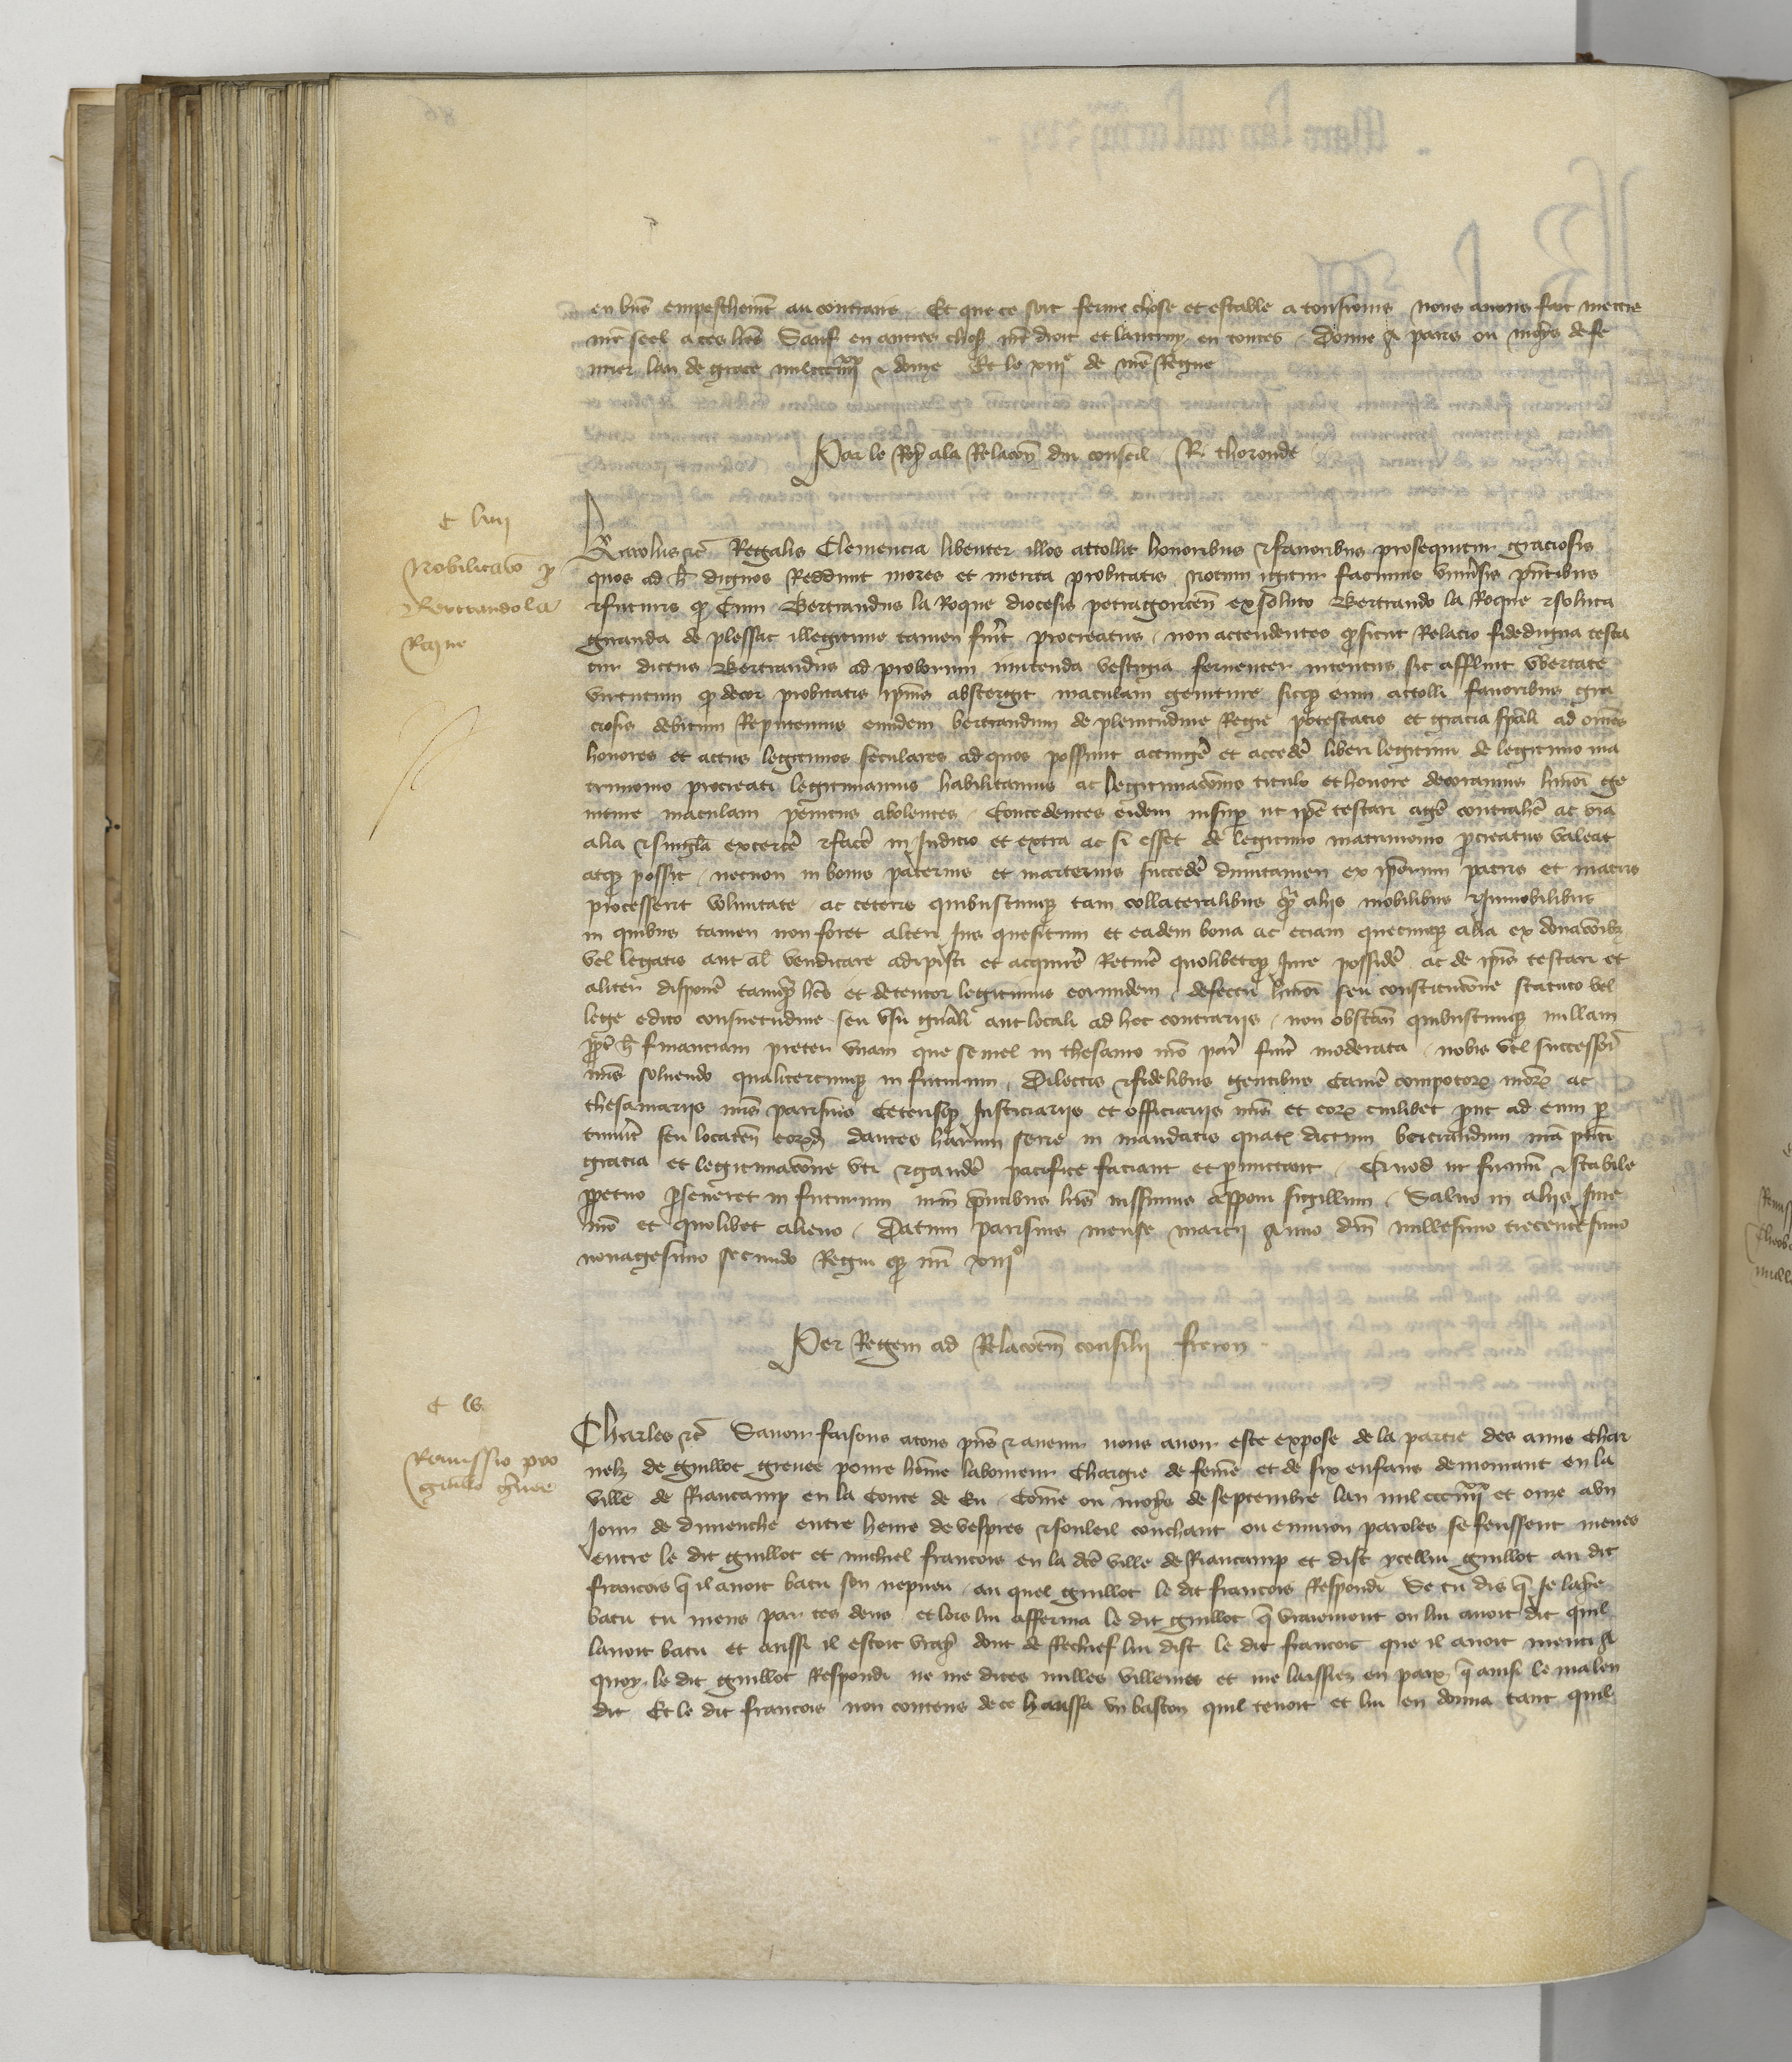 en biens empeschemt au contraire Et que ce soit ferme chose et estable a tousiours nous auons fait mettre
nre seel a ces lres Sauf en autres choses nre droit et lautruy en toutes Donne a paris ou moys de fe
urier lan de grace mil ccc iiiixx & douze Et le xiiie de nre Regne
Par le Roy a la Relacon du conseil R. thoronde
C liiij
Nobilitaco p
Bertrando la
Roque
Karolus &c Regalis Clemencia libenter illos attollit honoribus & fauoribus prosequitur graciosis
quos ad h dignos Reddunt mores et merita probitatis Notum igitur facimus vniusis pntibus
& futuris q Cum Bertrandus la Roque diocesis petragoricen ex soluto Bertrando la Roque & soluta
guranda de plessac illegitime tamen fuit procreatus non attendentes q sicut Relacio fidedigna testa
tur dictus Bertrandus ad proborum imitenda vestigia feruenter intentus sic affluit vbertate
virtutum q decor probitatis ipsius abstergit maculam geniture sicq eum attolli fauoribus gra
ciosis debitum Reputemus eundem bertrandum de plenitudine Regie potestatis et gracia spali ad omes
honores et actus legitimos seculares ad quos possunt attinge et accede liberi legitimi de legitimo ma
trimonio procreati legitimamus habilitamus ac legitimacois titulo et honore decoramus hmoi ge
niture maculam penitus abolentes Concedentes eidem insup ut ipe testari age contrahe ac oia
alia & singla exerce & face in Iudicio et extra ac si esset de legitimo matrimonio pcreatus valeat
atq possit necnon in bonis paternis et marternis succede dumtamen ex ipsorum patris et matris
processerit voluntate ac ceteris quibuscunq tam collateralibus q aliis mobilibus & Inmobilibus
in quibus tamen non foret alteri Ius quesitum et eadem bona ac eciam quecunq alia ex donacoibz
vel legatis aut al vendicare adipisci et acquire Retine quolibetq Iure posside ac de ipis testari et
aliter dispone tamq hes et detentor legitimus eorumdem defectu hmoi seu constitucione statuto vel
lege edicto consuetudine seu vsu gnali aut locali ad hec contrariis non obstan quibuscunq nullam
ppt h financiam preter vnam que semel in thesauro nro par fuit moderata nobis vel successor
nris soluendo qualitercunq in futurum Dilectis & fidelibus gentibus Camere compotorz nrorz ac
thesaurariis nris parisius Ceterisq Iusticiariis et officiariis nris et eorz cuilibet put ad eum p
tinuit seu locaten eorzd dantes harum serie in mandatis quatz dictum bertrandum nra pnti
gracia et legitimacone vti & gaude pacifice faciant et pmittant Quod ut firmu & stabile
ppetuo pseueret in futurum nrm pntibus lris iussimus apponi sigillum Saluo in aliis Iure
nro et quolibet alieno Datum parisius mense marcii Anno dni millesimo trecentesimo
nonagesimo secundo Regni q nri xiiio
Per Regem ad Relacoem consilii freron
C lv
Remissio pro
guillo gruee
Charles &c Sauoir faisons a tous pns & auenir nous auoir este expose de la partie des amis char
nelz de guillot greuee poure home laboureur Chargie de feme et de six enfans demourant en la
ville de Riancamp en la Conte de Eu Come ou moys de septembre lan mil ccc iiiixx et onze a vn
Iour de dimenche entre heure de vespres & souleil couchant ou enuiron paroles se feussent meues
entre le dit guillot et michiel francois en la dce ville de Riancamp et dist ycellui guillot au dit
francois q il auoit batu son nepueu au quel guillot le dit francois Respondi Se tu dis q Ie laye
batu tu mens par tes dens et lors lui afferma le dit guillot q vraiement on lui auoit dit quil
lauoit batu et aussi il estoit vray dont de Rechief lui dist le dit francois que il auoit menti A
quoy le dit guillot Respondi ne me dites nulles villenies et me laissiez en paix q ainsi le ma len
dit Et le dit francois non contens de ce haussa vn baston quil tenoit et lui en donna tant quil